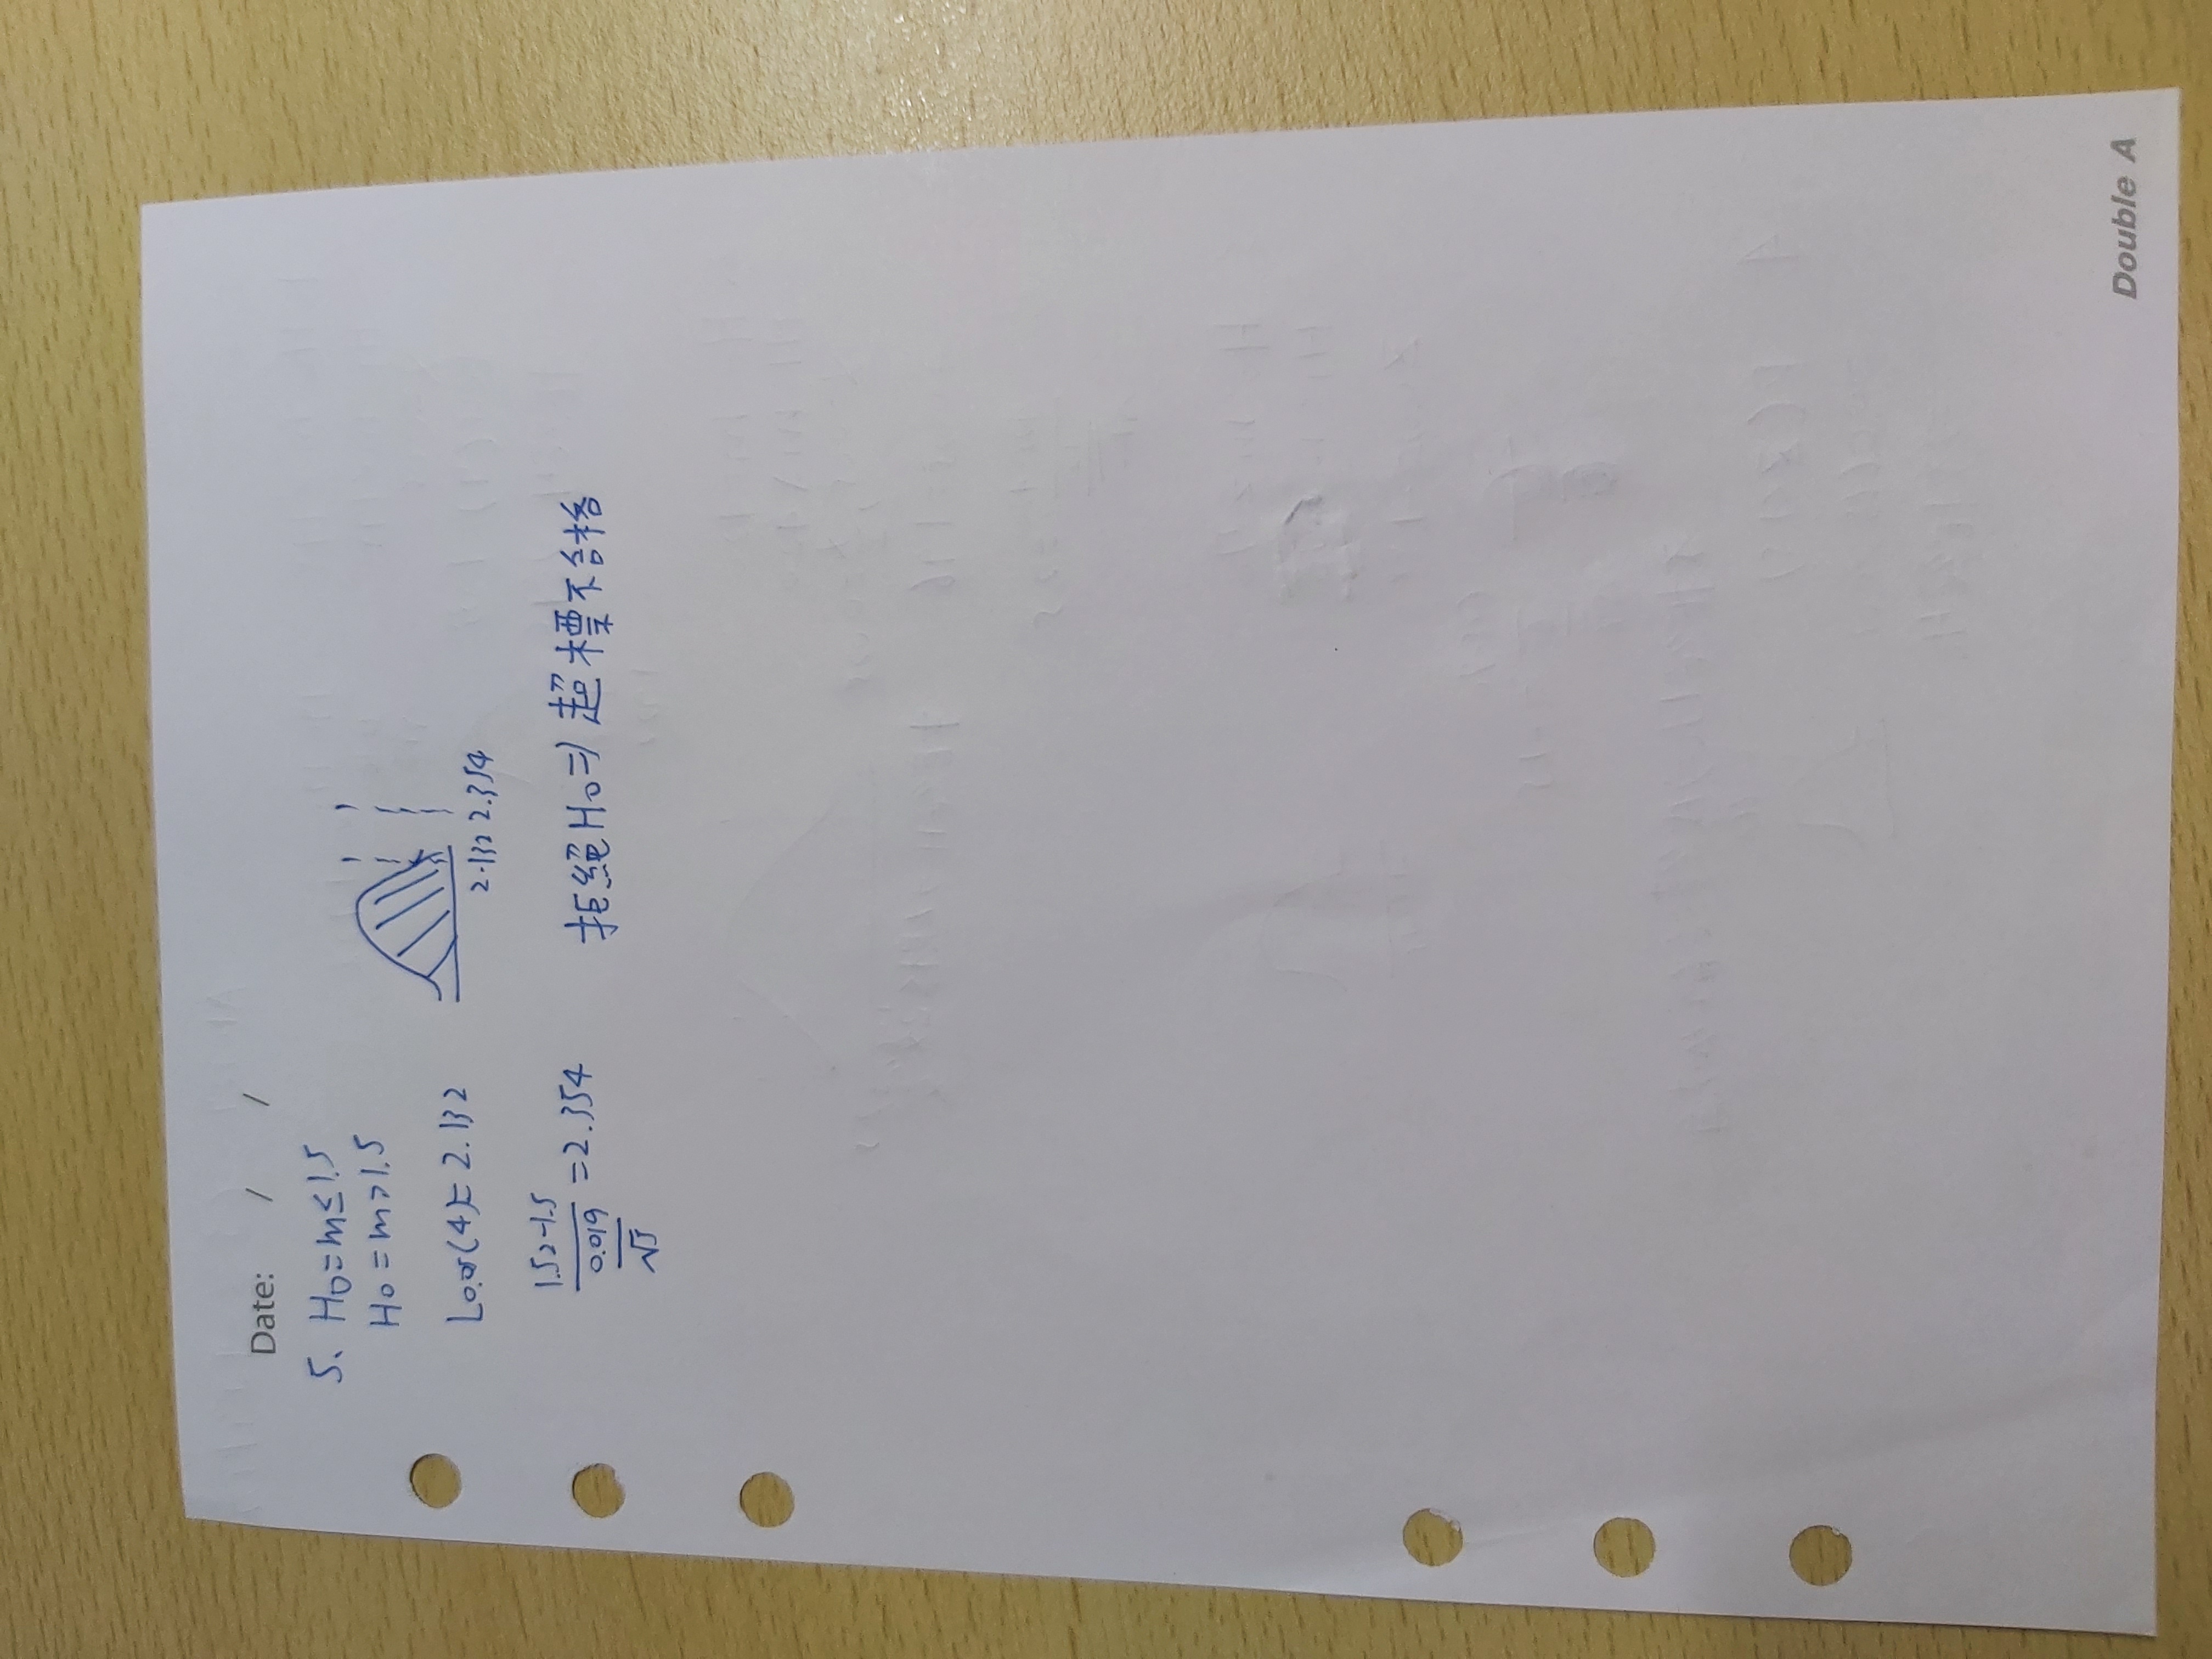 Date: / /
5. H0=m≤1.5
H0=m>1.5
t0.05(4)=2.132
2.132 2.354
1.52-1.5
0.019
√5
=2.354
拒絕H0⇒超標不合格
Double A